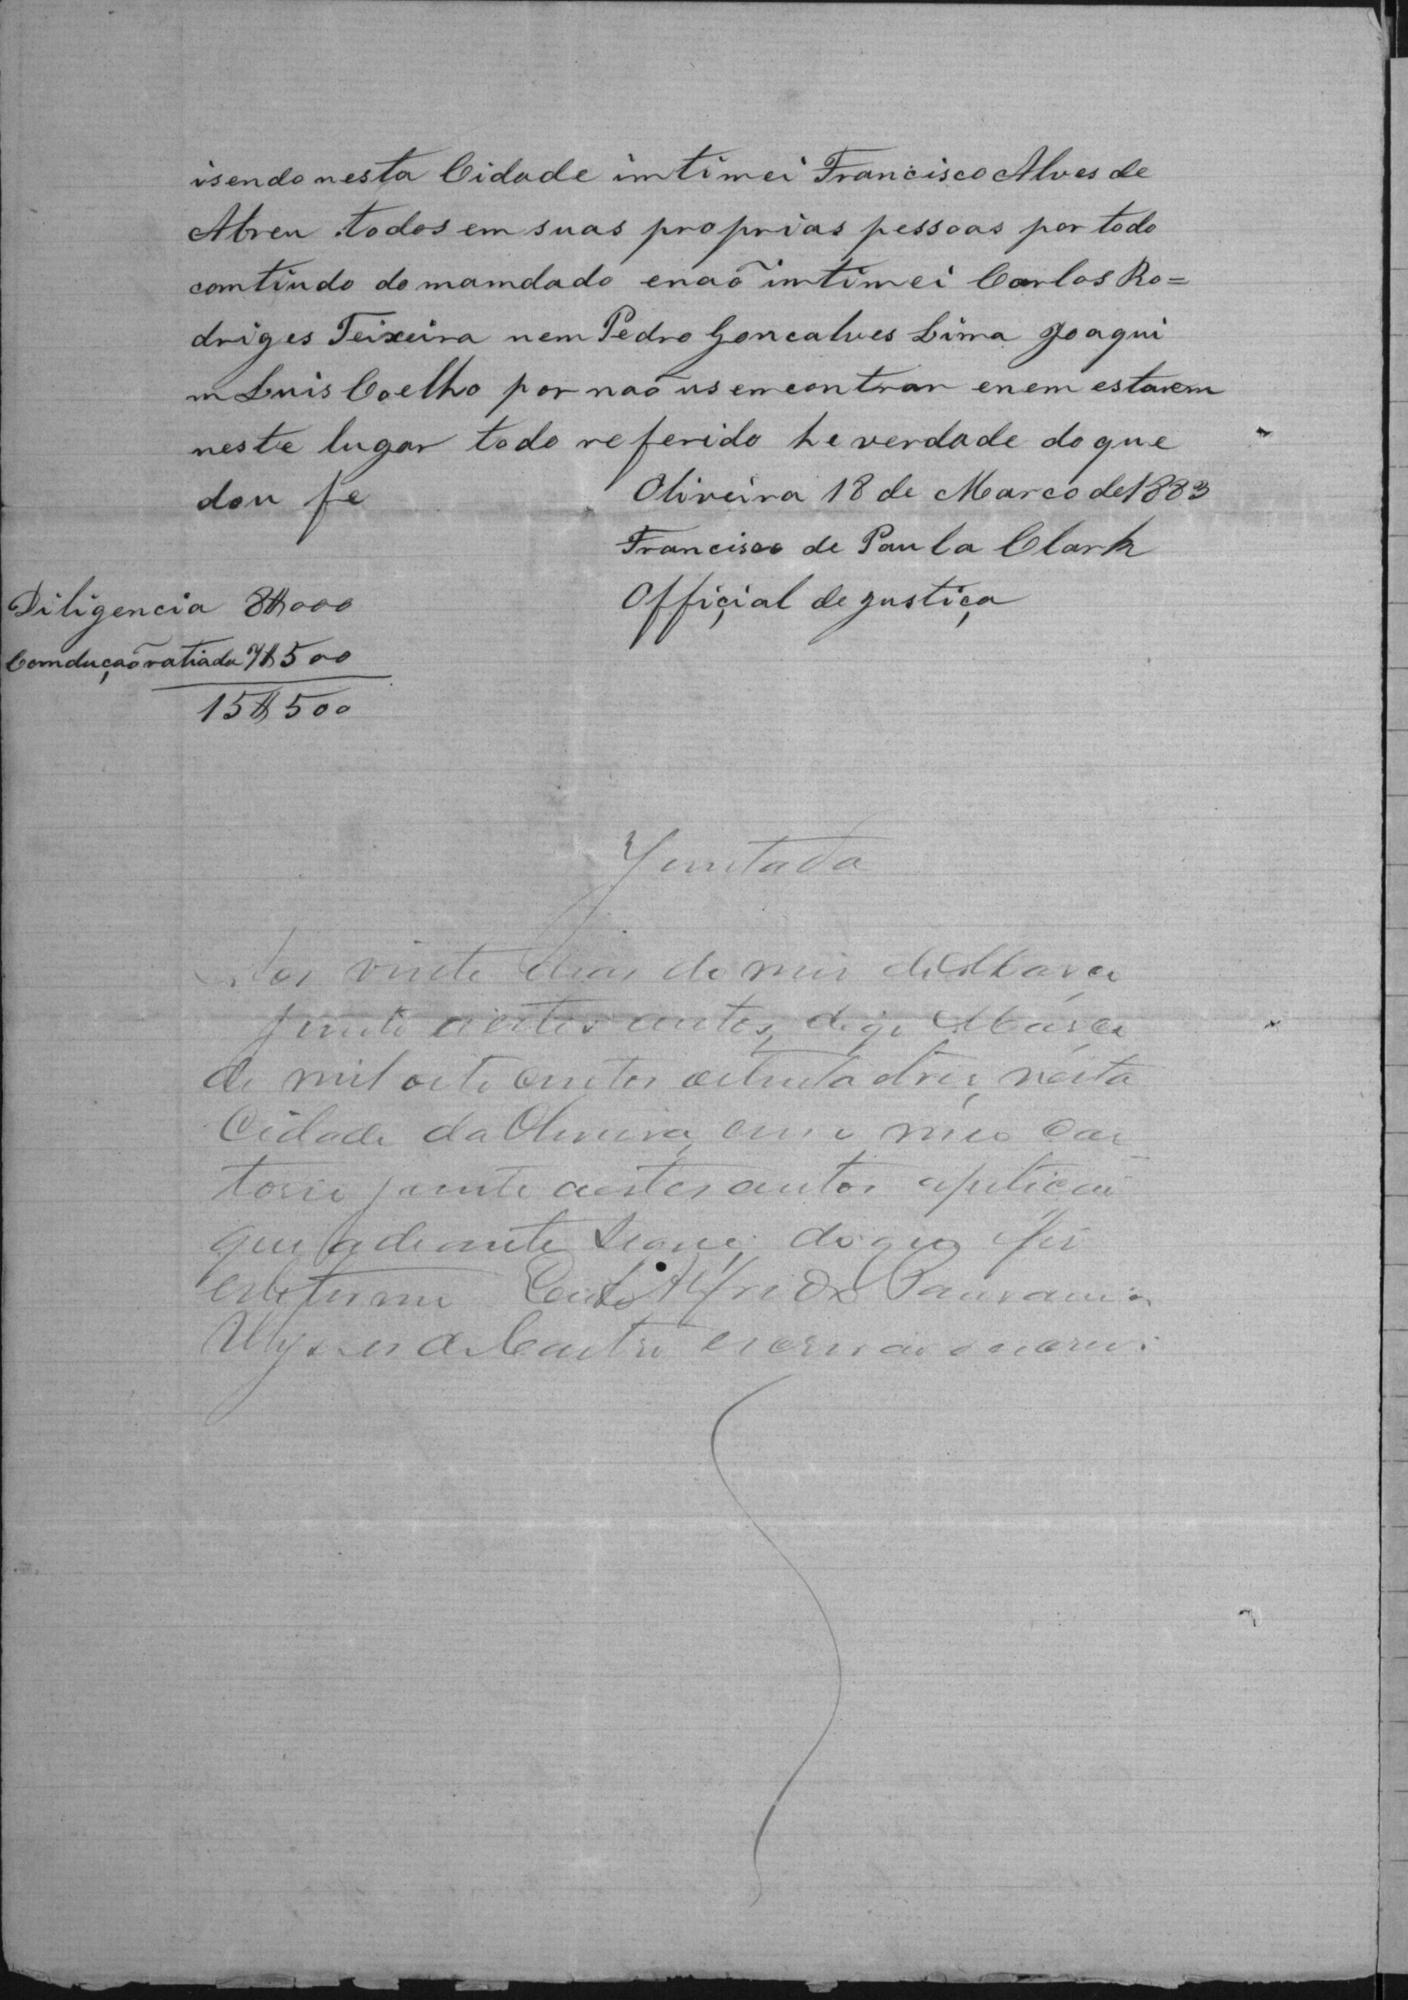 isendo nesta Cidade imtimei Francisco Alves de
Abreu todos em suas proprias pessoas por todo
comtiudo do mamdado enaõ imtimei Carlos Ro=
driges Teixeira nem Pedro Goncalves Lima Joaqui
m Luis Coelho por naõ us emcontrar enem estarem
neste lugar todo referido he verdade do que
dou fe
Oliveira 18 de Marco de 1883
Francisco de Paula Clark
Officjal de justiça
Diligencia 8$000
Comduçaõ ratiada 7$500
15$500
Juntada
Aos vinte dias do mes de Março
junto aestes autos, digo Março
de mil oito centos oitenta e tres, nesta
Cidade da Oliveira, em o meo Car
torio junto aestes autos apeticaõ
que adeante segue, do que fis
este termo Eu Alfrido Pausanias
Ulysses de Castro escrivaõ o escrevi.